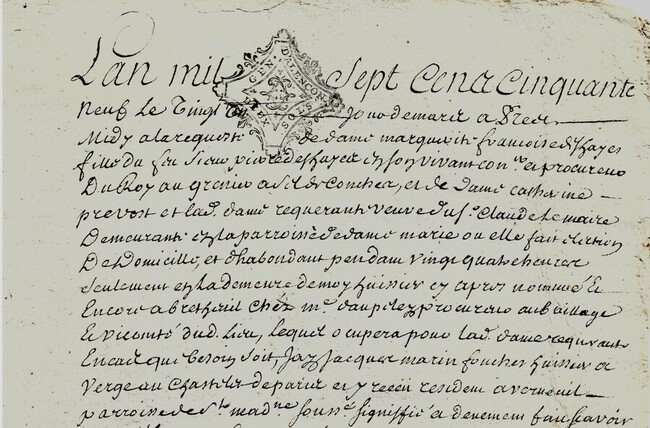 Lan mil Sept Cens Cinquante
GEN D'ALENCON
neuf Le Vingt Jour de mars apres
Midy a la requeste de dame marguerite francoise deshayes
fille du feu Sieur pierre deshayes en son vivant con.er procureur
Du Roy au grenier a Sel de Conches, et de Dame catherine
prevost et lad. dame requerante veuve du s.r Claude Lemaire
Demeurante en la parroisse de dame marie ou elle fait election
De Domicille, et dhabondant pendant vingt quatre heures
seulement en la demeure de moy huissier cy apres nommé Et
Encore a breteuil chez m.e procureur au bailliage
Et vicomté dud. Lieu, lequel occupera pour lad. dame requerante
En cas que besoin soit, Jay Jacques marin fouchet huissier a
Verge au Chastelet de paris et y receu resident a verneuil
parroisse de s.te mad.ne sous.né signiffié et deuement fait scavoir